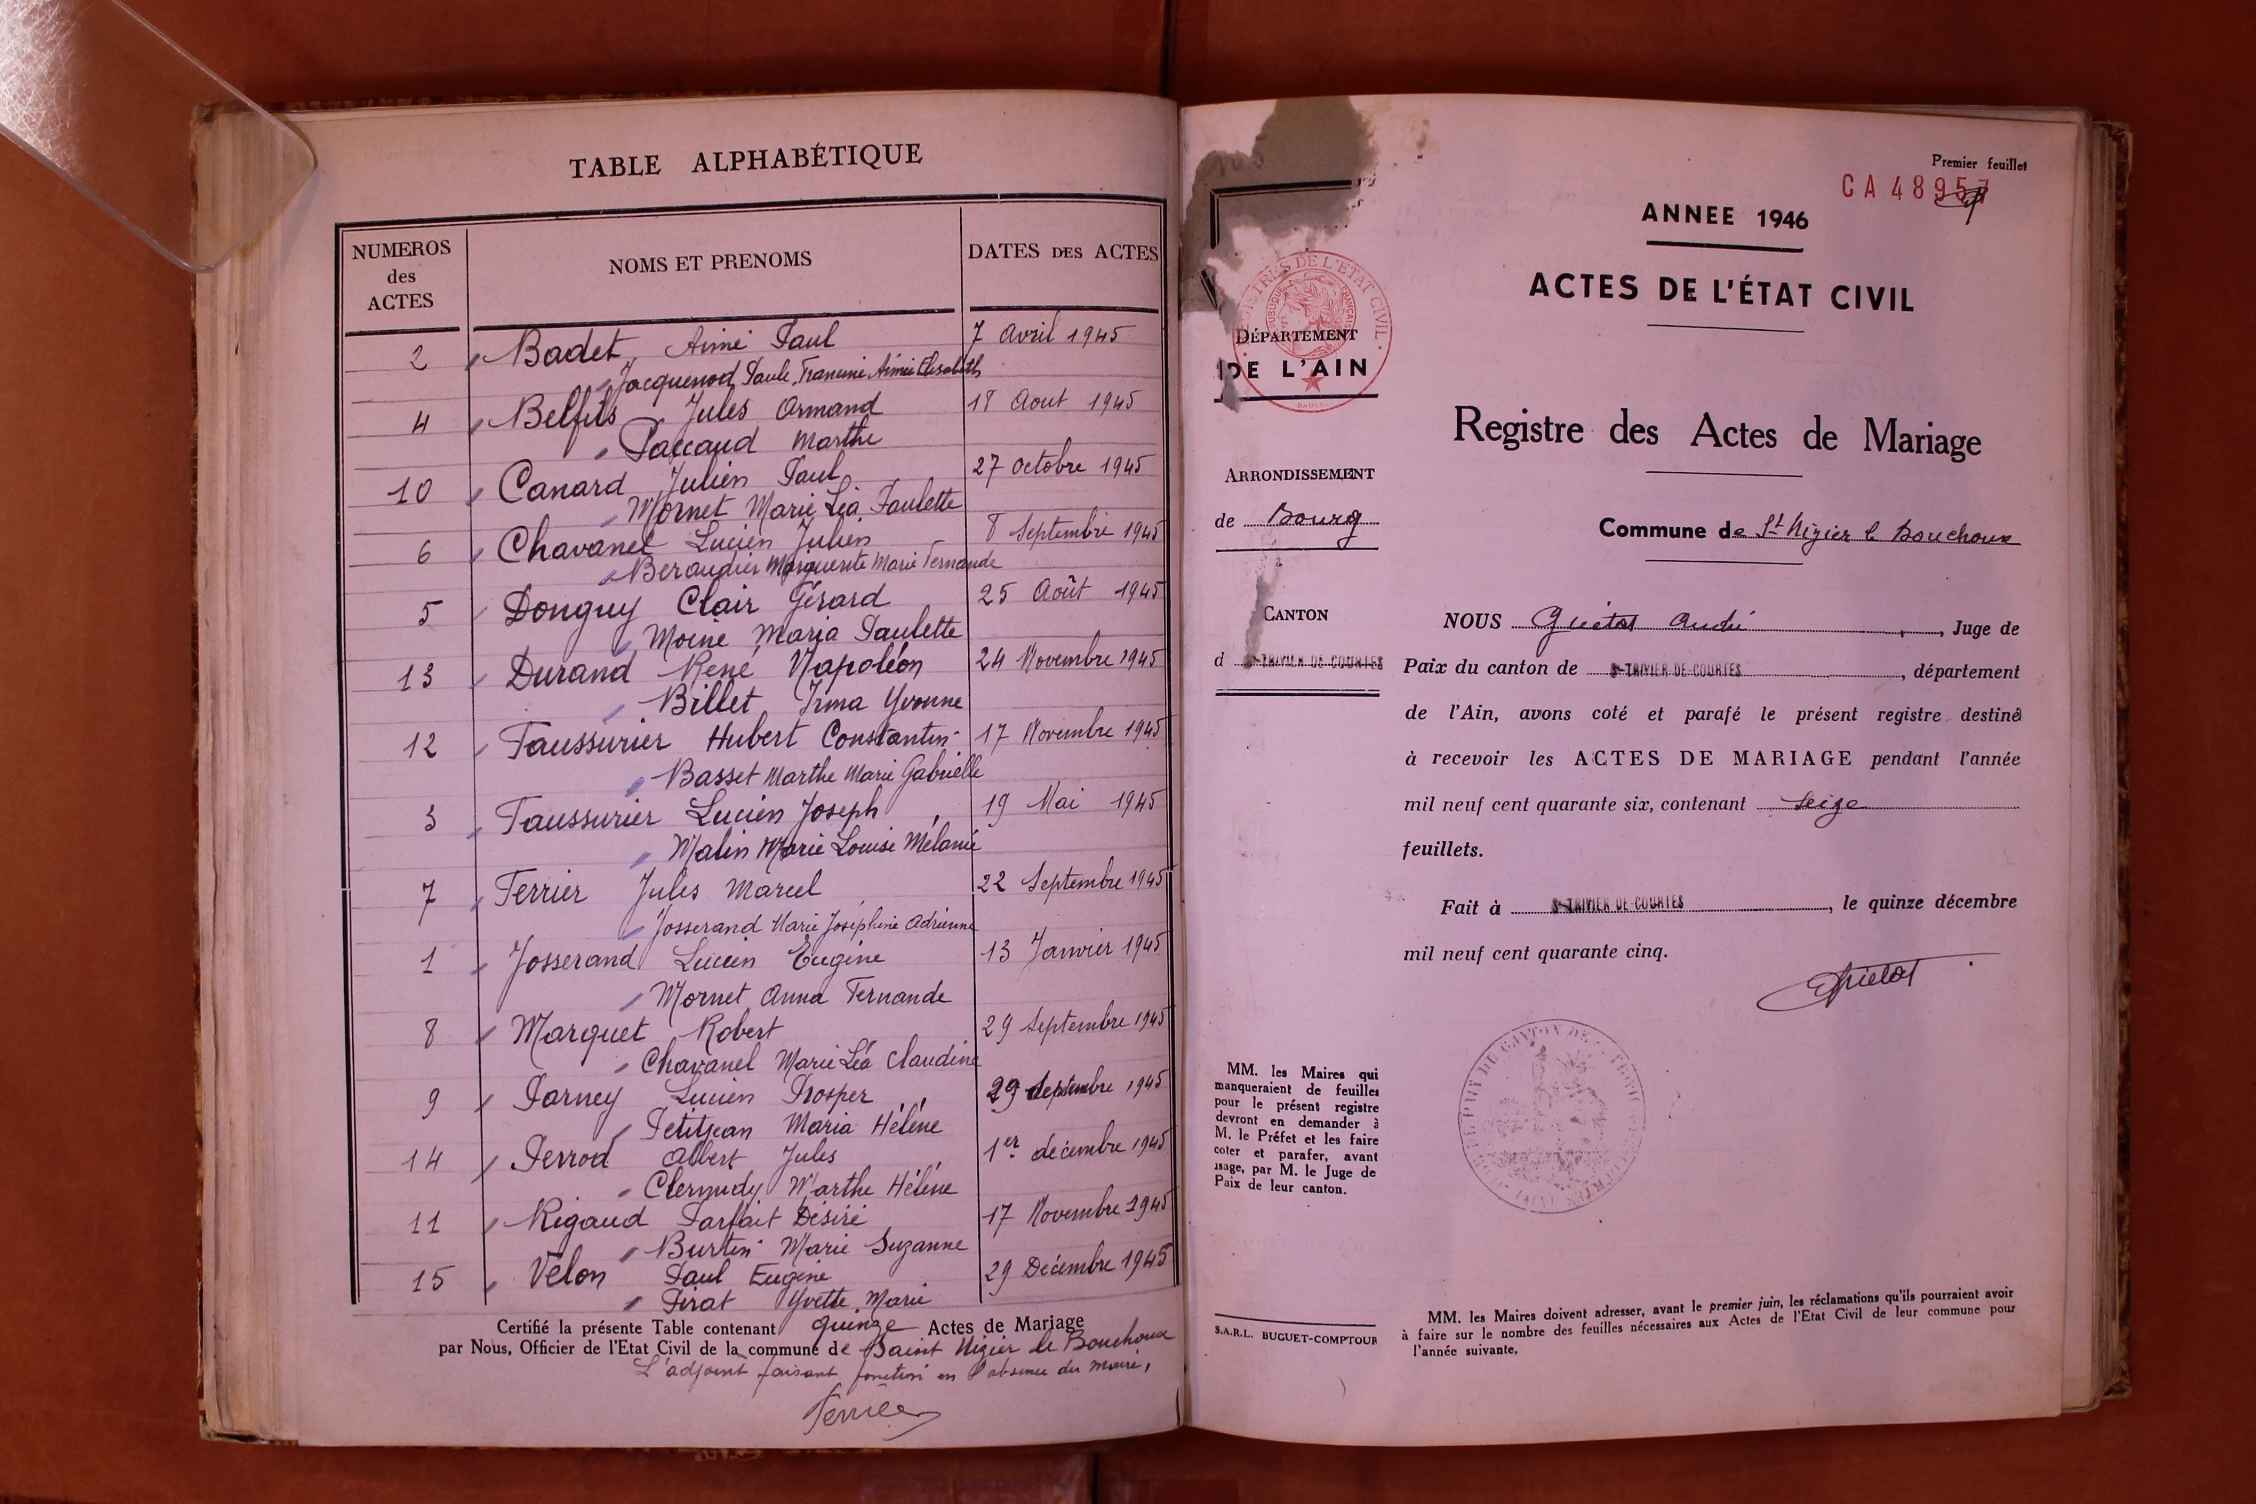 TABLE ALPHABÉTIQUE
NUMEROS
des
ACTES
NOMS ET PRENOMS
DATES DES ACTES
2 Badet Aimé Paul 7 Avril 1945
Jacquenod Paule Francine Aimée Elisabeth
4 Belfils Jules Armand 18 Aout 1945
Paccaud Marthe
10 Canard Julien Paul 27 Octobre 1945
Mornet Marie Léa Paulette
6 Chavanel Lucien Julien 8 Septembre 1945
Beraudier Marguerite Marie Fernande
5 Donguy Clair Gérard 25 Août 1945
Moine Maria Paulette
13 Durand René Napoléon 24 Novembre 1945
Billet Irma Yvonne
12 Faussurier Hubert Constantin 17 Novembre 1945
Basset Marthe Marie Gabrielle
3 Faussurier Lucien Joseph 19 Mai 1945
Malin Marie Louise Mélanie
7 Ferrier Jules Marcel 22 Septembre 1945
Josserand Marie Joséphine Adrienne
1 Josserand Lucien Eugène 13 Janvier 1945
Mornet Anna Fernande
8 Marquet Robert 29 Septembre 1945
Chavanel Marie Léa Claudine
9 Parney Lucien Prosper 29 Septembre 1945
Petitjean Maria Hélène
14 Perrod Albert Jules 1er décembre 1945
Clermidy Marthe Hélène
11 Rigaud Parfait Désiré 17 Novembre 1945
Burtin Marie Suzanne
15 Velon Paul Eugène 29 Décembre 1945
Pirat Yvette Marie
Certifié la présente Table contenant quinze Actes de Mariage
par Nous, Officier de l'Etat Civil de la commune de Saint Nizier le Bouchoux
L'adjoint faisant fonction en l'absence du maire,
Premier feuillet
CA 48957
ANNEE 1946
ACTES DE L'ÉTAT CIVIL
DÉPARTEMENT
DE L'AIN
Registre des Actes de Mariage
ARRONDISSEMENT
de Bourg
Commune de St Nizier le Bouchoux
CANTON
d St-TRIVIER-DE-COURTES
NOUS Guétat André, Juge de
Paix du canton de St-TRIVIER-DE-COURTES, département
de l'Ain, avons coté et parafé le présent registre destiné
à recevoir les ACTES DE MARIAGE pendant l'année
mil neuf cent quarante six, contenant seize
feuillets.
Fait à St-TRIVIER-DE-COURTES, le quinze décembre
mil neuf cent quarante cinq.
MM. les Maires qui
manqueraient de feuilles
pour le présent registre
devront en demander à
M. le Préfet et les faire
coter et parafer, avant
usage, par M. le Juge de
Paix de leur canton.
S.A.R.L. BUGUET-COMPTOUR
MM. les Maires doivent adresser, avant le premier juin, les réclamations qu'ils pourraient avoir
à faire sur le nombre des feuilles nécessaires aux Actes de l'Etat Civil de leur commune pour
l'année suivante.